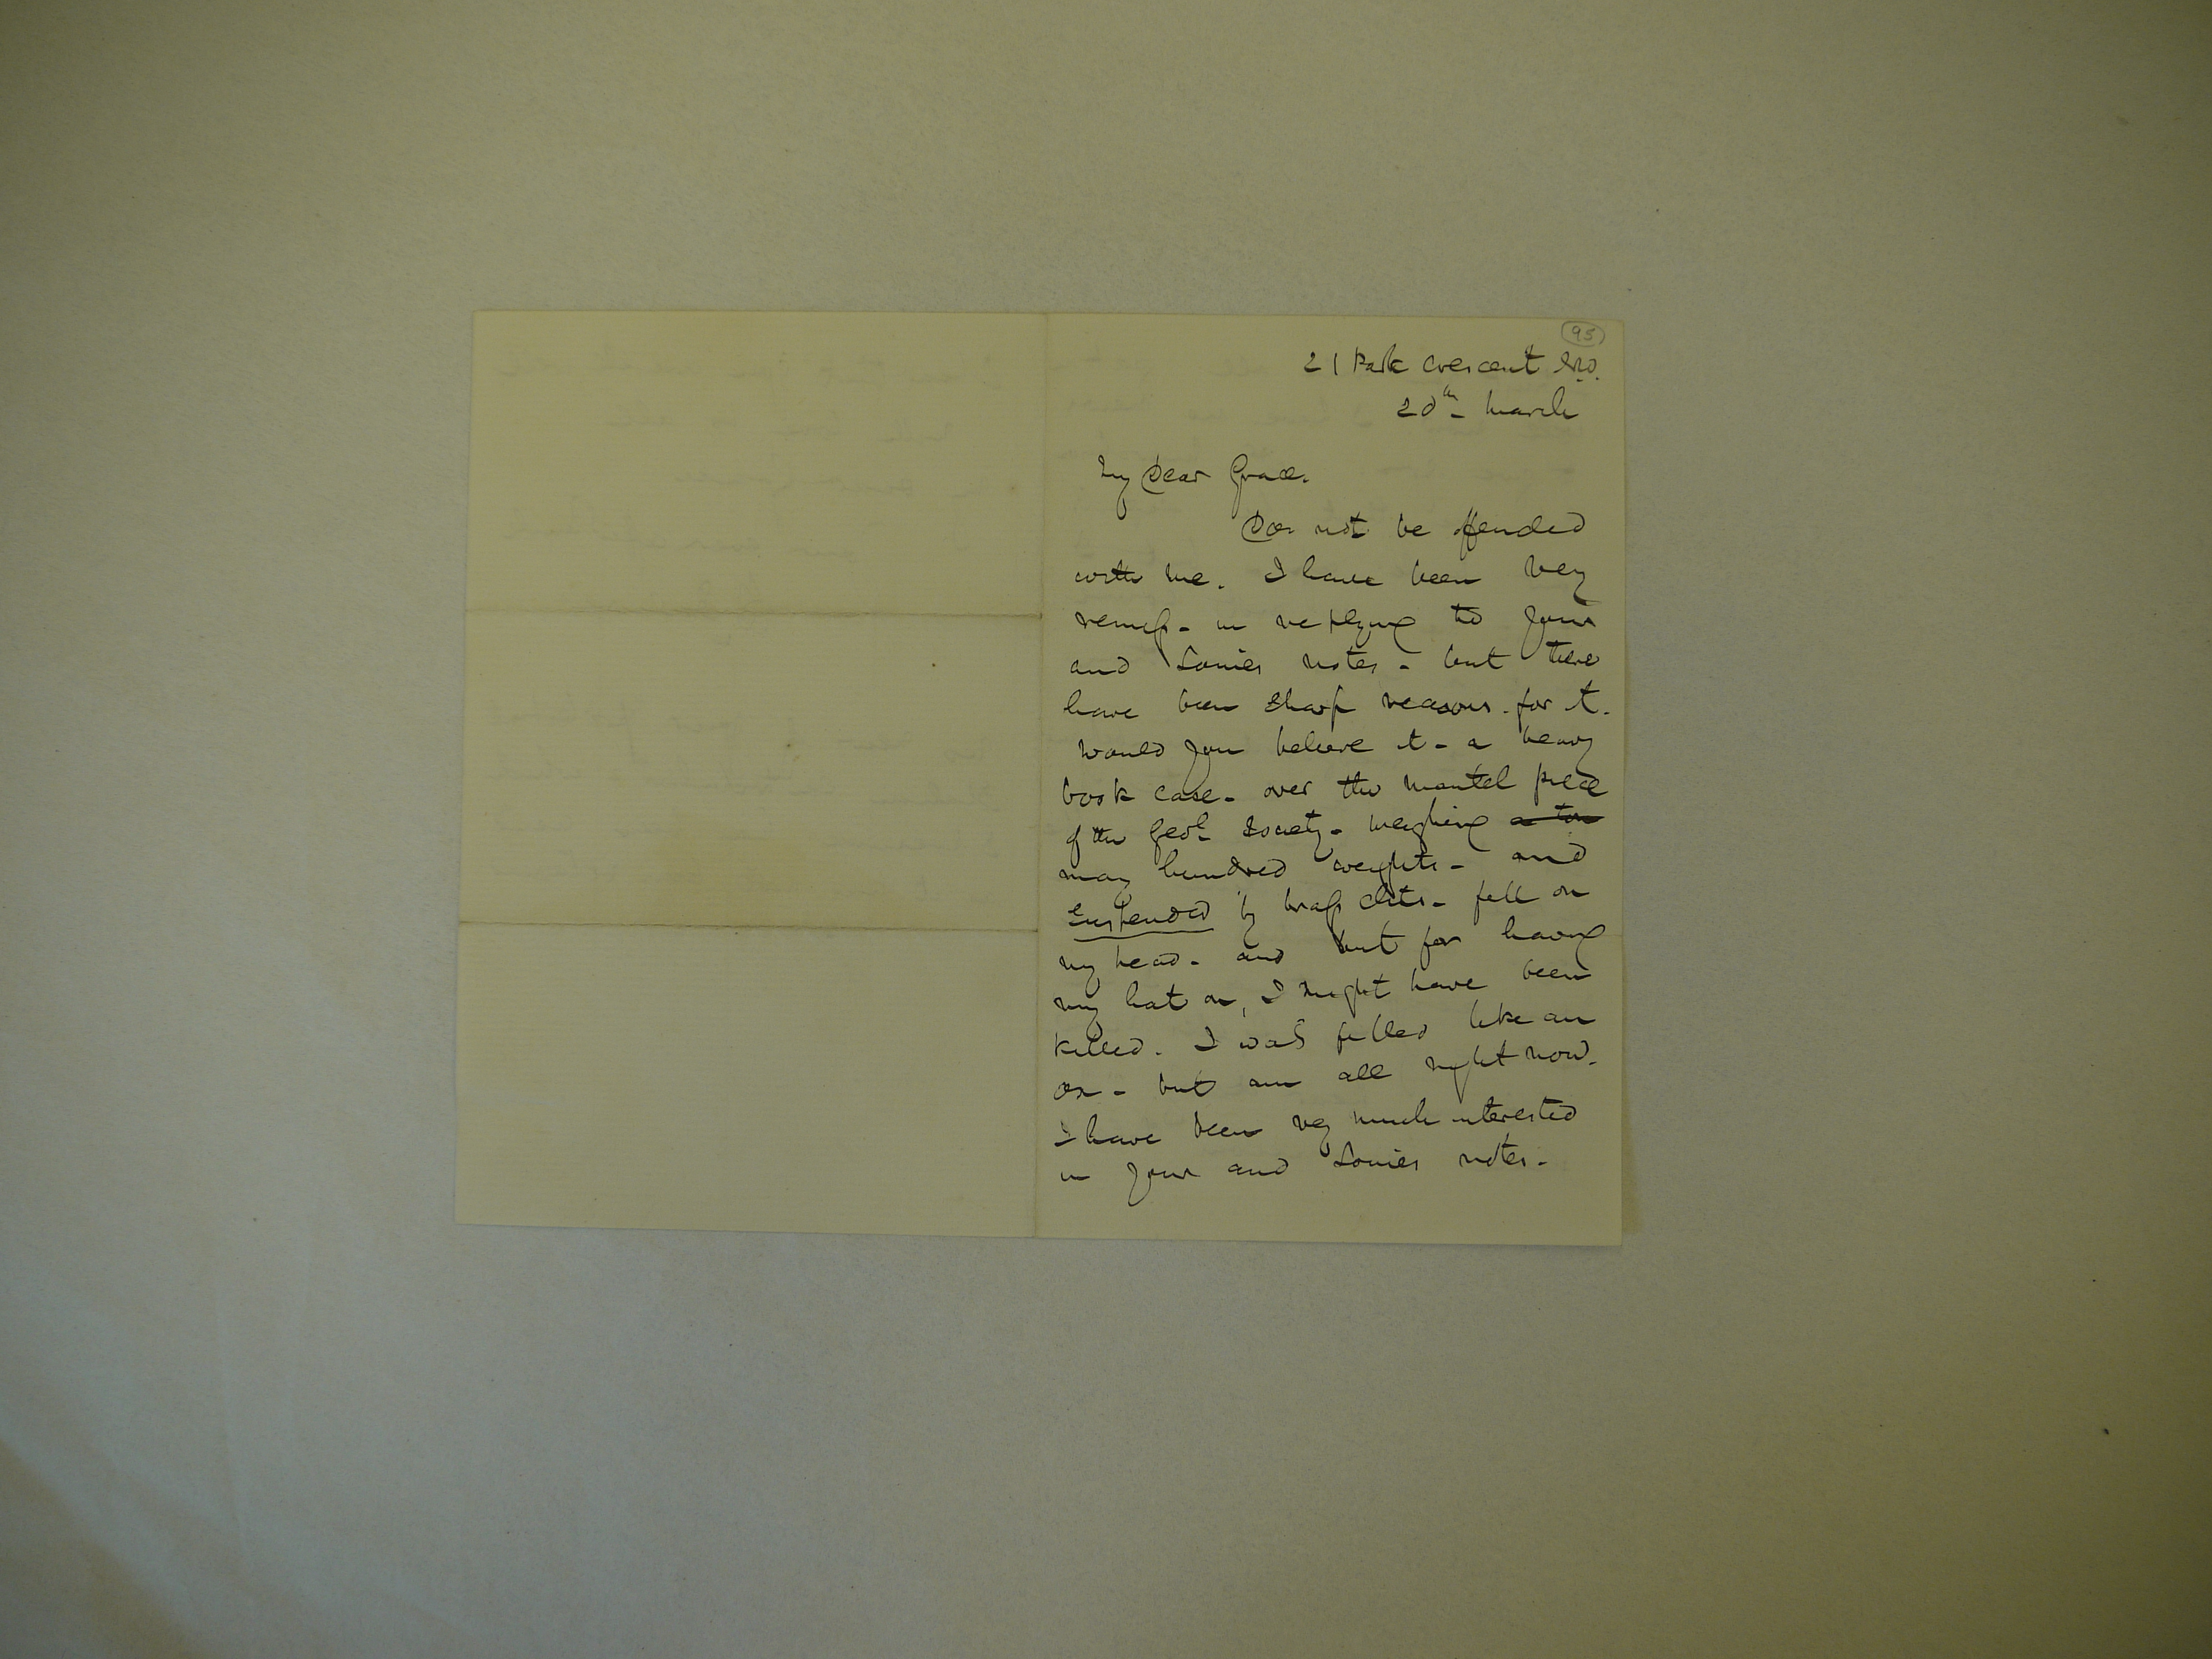 95
21 Park Crescent N.W.
20th March
My Dear Grace.
Do not be offended
with me. I have been very
remiss - in replying to your
and Louies notes - but there
have been sharp reasons for it.
Would you believe it - a heavy
book case - over the mantel piece
of the Geol Society - weighing a ton
many hundred weights - and
suspended by brass clits - fell on
my head - and but for having
my hat on, I might have been
killed. I was felled like an
ox - but am all right now.
I have been very much interested
in your and Louies notes -